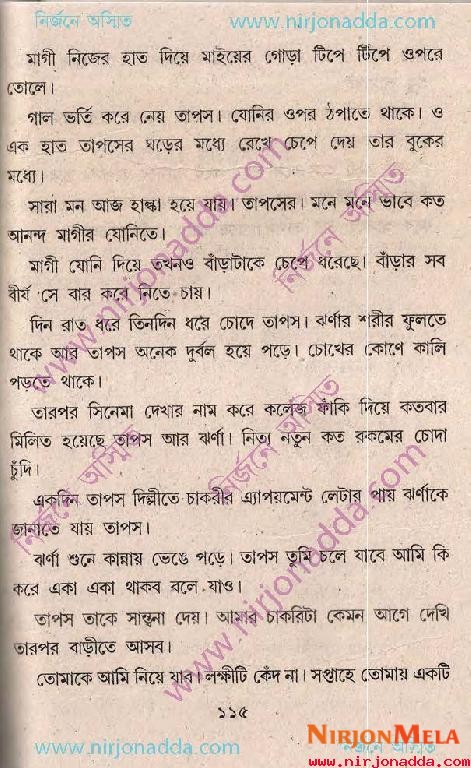 নির্জনে অস্মিত www.nirjonadda.com
মাগী নিজের হাত দিয়ে মাইয়ের গোড়া টিপে টিপে ওপরে
তোলে।
গাল ভর্তি করে নেয় তাপস। যোনির ওপর ঠপাতে থাকে। ও
এক হাত তাপসের ঘড়ের মধ্যে রেখে চেপে দেয় তার বুকের
মধ্যে।
সারা মন আজ হাল্কা হয়ে যায়। তাপসের। মনে মনে ভাবে কত
আনন্দ মাগীর যোনিতে।
মাগী যোনি দিয়ে তখনও বাঁড়াটাকে চেপে ধরেছে। বাঁড়ার সব
বীর্য সে বার করে নিতে চায়।
দিন রাত ধরে তিনদিন ধরে চোদে তাপস। ঝর্ণার শরীর ফুলতে
থাকে আর তাপস অনেক দুর্বল হয়ে পড়ে। চোখের কোণে কালি
পড়তে থাকে।
তারপর সিনেমা দেখার নাম করে কলেজ ফাঁকি দিয়ে কতবার
মিলিত হয়েছে তাপস আর ঝর্ণা। নিত্য নতুন কত রকমের চোদা
চুঁদি।
একদিন তাপস দিল্লীতে চাকরীর এ্যাপয়মেন্ট লেটার পায় ঝর্ণাকে
জানাতে যায় তাপস।
ঝর্ণা শুনে কান্নায় ভেঙে পড়ে। তাপস তুমি চলে যাবে আমি কি
করে একা একা থাকব বলে যাও।
তাপস তাকে সান্ত্বনা দেয়। আমার চাকরিটা কেমন আগে দেখি
তারপর বাড়ীতে আসব।
তোমাকে আমি নিয়ে যাব। লক্ষীটি কেঁদ না। সপ্তাহে তোমায় একটি
১১৫
NIRJONMELA
www.nirjonadda.com নির্জনে অস্মিত
www.nirjonadda.com
www.nirjonadda.com
নির্জনে অস্মিত
নির্জনে অস্মিত
নির্জনে অস্মিত
www.nirjonadda.com